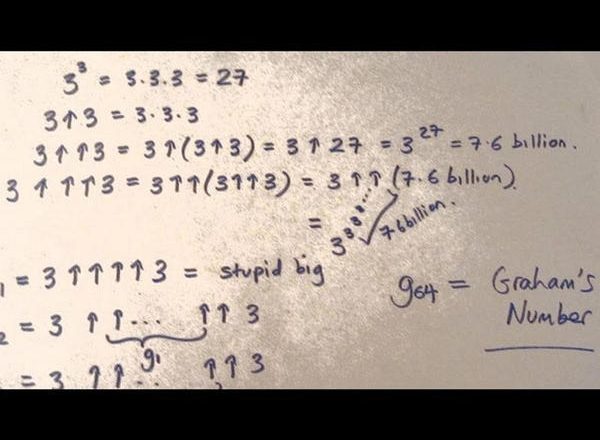 3³ = 3·3·3 = 27
3↑3 = 3·3·3
3↑↑3 = 3↑(3↑3) = 3↑27 = 3²⁷ = 7·6 billion.
3↑↑↑3 = 3↑↑(3↑↑3) = 3↑↑(7·6 billion).
= 3³³³··· 7·6 billion.
₁ = 3↑↑↑↑3 = stupid big
₂ = 3↑↑... ↑↑3
g₁
= 3↑↑... ↑↑3
g₆₄ = Graham's
Number